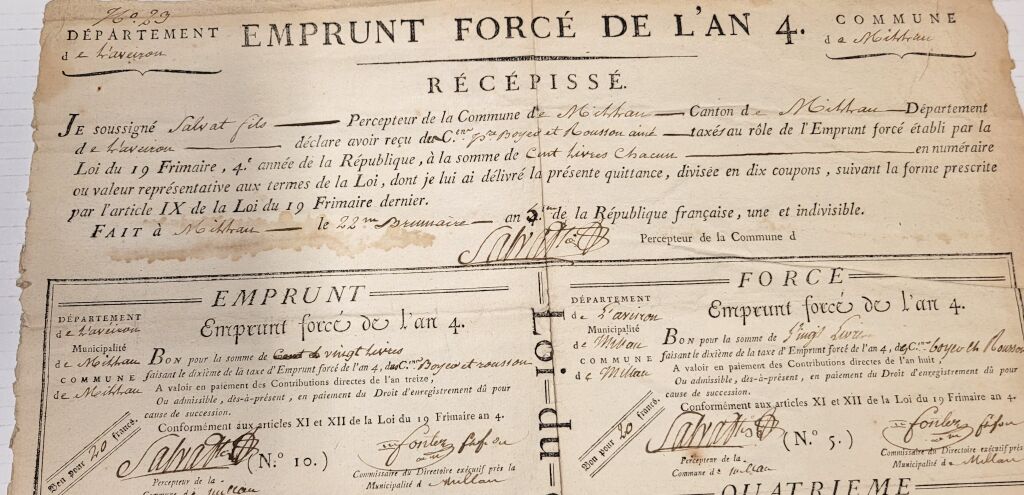 No. 23
DÉPARTEMENT
de L'aveiron
EMPRUNT FORCÉ DE L'AN 4.
COMMUNE
de Milhau
RÉCÉPISSÉ.
JE soussigné Salvat fils Percepteur de la Commune de Milhau Canton de Milhau Département
de L'aveiron déclare avoir reçu de C.ens Boyer et Rousson ainé taxés au rôle de l'Emprunt forcé établi par la
Loi du 19 Frimaire, 4.e année de la République, à la somme de Cent Livres Chacun en numéraire
ou valeur représentative aux termes de la Loi, dont je lui ai délivré la présente quittance, divisée en dix coupons, suivant la forme prescrite
par l'article IX de la Loi du 19 Frimaire dernier.
FAIT à Milhau le 22 Brumaire an de la République française, une et indivisible.
Salvat fils Percepteur de la Commune d
EMPRUNT
DÉPARTEMENT
de L'aveiron
Municipalité
de Milhau
COMMUNE
de Milhau
Emprunt forcé de l'an 4.
BON pour la somme de vingt Livres
faisant le dixième de la taxe d'Emprunt forcé de l'an 4, des C.ens Boyer et rousson
A valoir en paiement des Contributions directes de l'an treize,
Ou admissible, dès-à-présent, en paiement du Droit d'enregistrement dû pour
cause de succession.
Conformément aux articles XI et XII de la Loi du 19 Frimaire an 4.
Bon pour 20 francs.
Salvat fils
(N.° 10.)
Percepteur de la
Commune de millau
Commissaire du Directoire exécutif près la
Municipalité d millau
Loi du
FORCÉ
DÉPARTEMENT
de L'aveiron
Municipalité
de Millau
COMMUNE
de Millau
Emprunt forcé de l'an 4.
BON pour la somme de vingt Livres
faisant le dixième de la taxe d'Emprunt forcé de l'an 4, des C.ens boyer et Rousson
A valoir en paiement des Contributions directes de l'an huit,
Ou admissible, dès-à-présent, en paiement du Droit d'enregistrement dû pour
cause de succession.
Conformément aux articles XI et XII de la Loi du 19 Frimaire an 4.
Bon pour 20 francs.
Salvat fils
(N.° 5.)
Percepteur de la
Commune de millau
Commissaire du Directoire exécutif près la
Municipalité d Millau
QUATRIEME